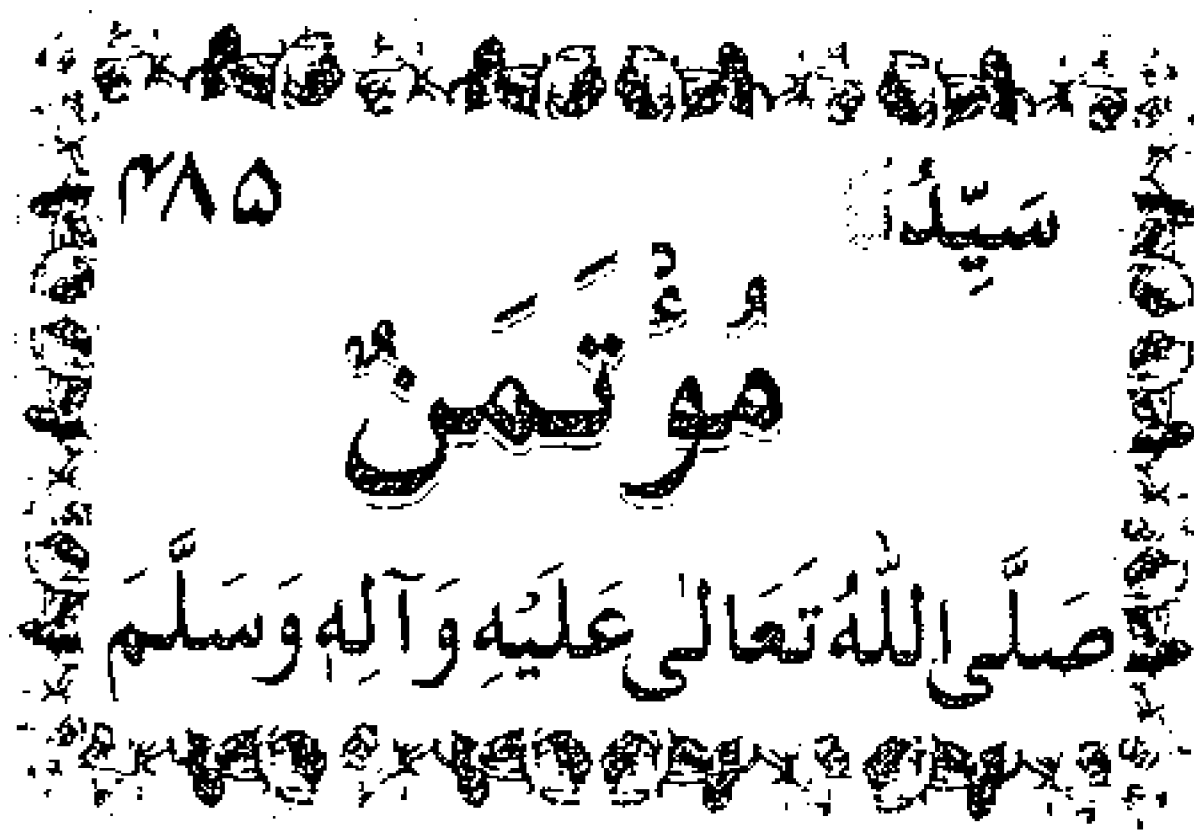 سَيِّدُنَا ۳۸۵
مُؤْتَمَنٌ
صَلَّى اللّٰهُ تَعَالىٰ عَلَيْهِ وَآلِهِ وَسَلَّمَ